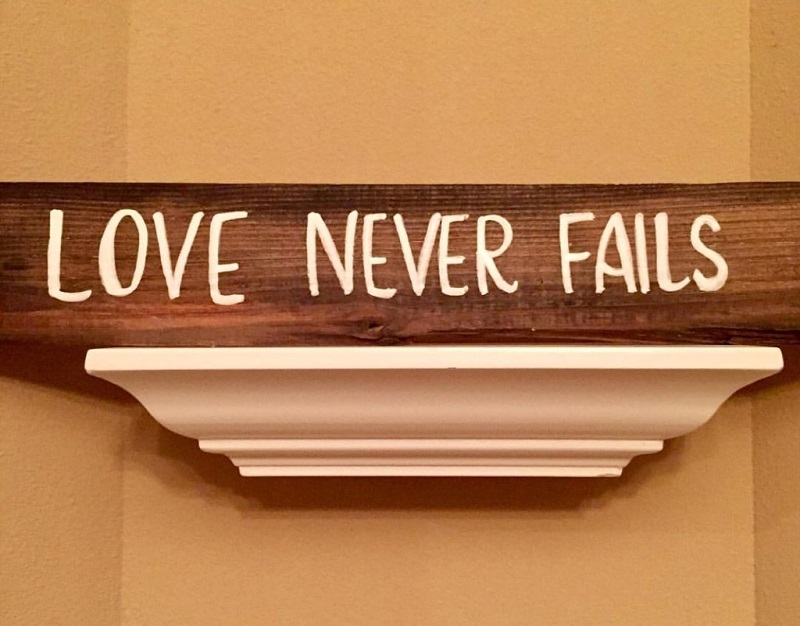 LOVE NEVER FAILS